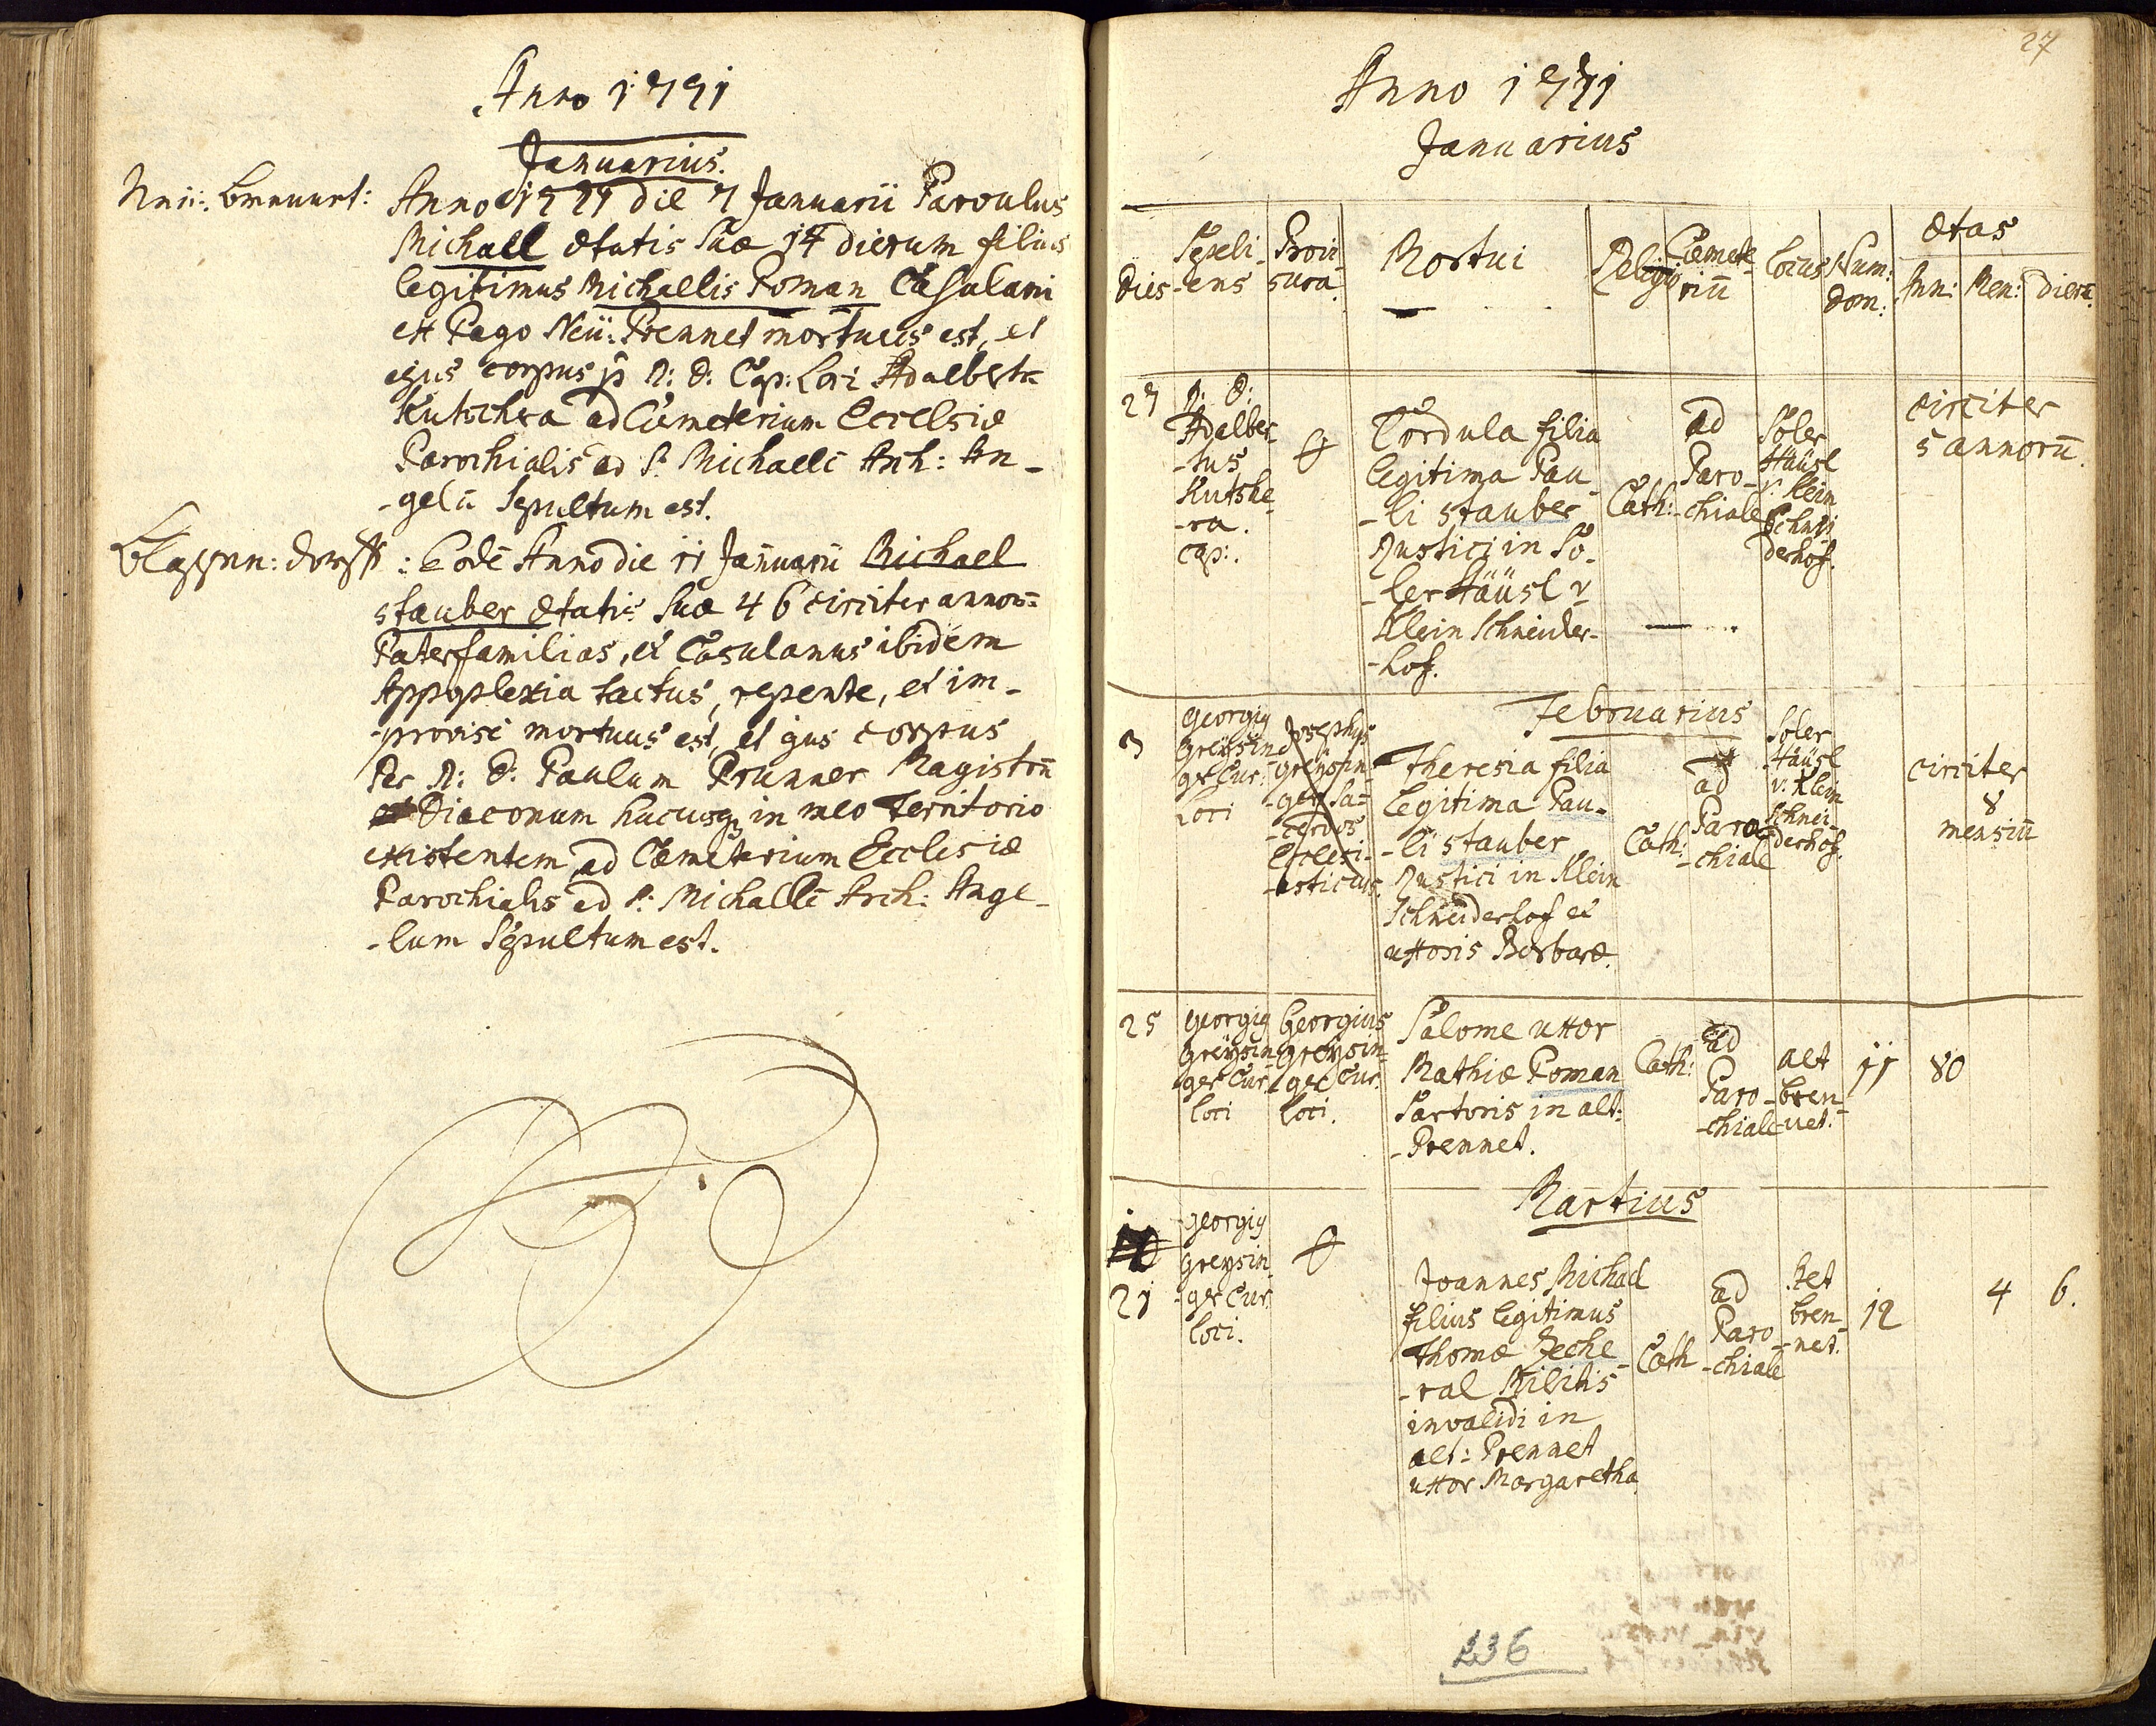 Anno 1771
Januarius.
Neü: brennet:
Anno 1771 die 7 Januarii Parvulus
Michael ætatis suæ 14 dierum filius
legitimus Michaelis Roman Casulani
ex Pago Neü: Prennet mortuus est, et
ejus corpus p R: D: Cap: Loci Adalbertū
Kutschra ad Cæmeterium Ecclesiæ
Parochialis ad S: Michaelē Arch: An-
-gelū sepultum est.
: Eodē Anno die 11 Januarii Michael
stauber ætatis suæ 46 circiter annorū
Paterfamilias, et Casulanus ibidem
Appoplexia tactus, repente, et im-
-provise mortuus est, et ejus corpus
Per R: D: Paulum Prunner Magistrū
Diaconum hucusq in meo Territorio
existentem ad Cæmeterium Ecclesiæ
Parochialis ad S: Michaelē Arch: Ange-
-lum sepultum est.
27
Anno 1771
Januarius
Dies
Sepeli-
-ens
Provi-
sura
Mortui
Religio
Cæmete-
riū
Locus
Num:
dom:
Ætas
Ann:
Men:
dierū
27
R: D:
Adalber-
-tus
Kutshe-
-ra.
cap:.
Cordula filia
legitima Pau-
-li stauber
Rustici in Sö-
-ler Häüsl v
Klein Schneider-
-hof.
Cath:
ad
Paro-
-chiale
Söler
Häüsl
v. Klein
Schnei
derhof.
circiter
5 annorū.
Februarius
3
Georgig
Greÿsin-
ger Cur:
loci
Josephus
Greÿsin-
-ger Sa-
-cerdos
Eclesi-
-asticus.
Theresia filia
legitima Pau-
-li stauber
Rustici in Klein
Schneiderhof et
uxoris Barbaræ.
Cath:
ad
Paro
-chiale
Söler
Häüsl
v. Klein
Schnei-
derhof.
circiter
8
mensiū
25
Georgig
Greÿsin-
ger Cur.
loci
Georgius
Greÿsin-
ger Cur.
loci.
Salome uxor
Mathiæ Roman
Sartoris in alt:
-Prennet.
Cath:
ad
Paro-
-chiale
alt
bren-
-net.
11
80
Martius
21
Georgig
Greysin-
-ger Cur.
loci.
Joannes Michael
filius legitimus
Thomæ Zeche-
-ral Militis
invalidi in
alt: Prennet
uxor Margaretha.
Cath
ad
Paro-
-chiale
bren-
-net.
12
4
6.
236